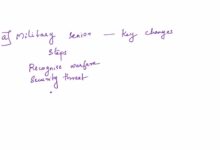 a] Military senior — Key changes
Steps
Recognise warfare
Security threat